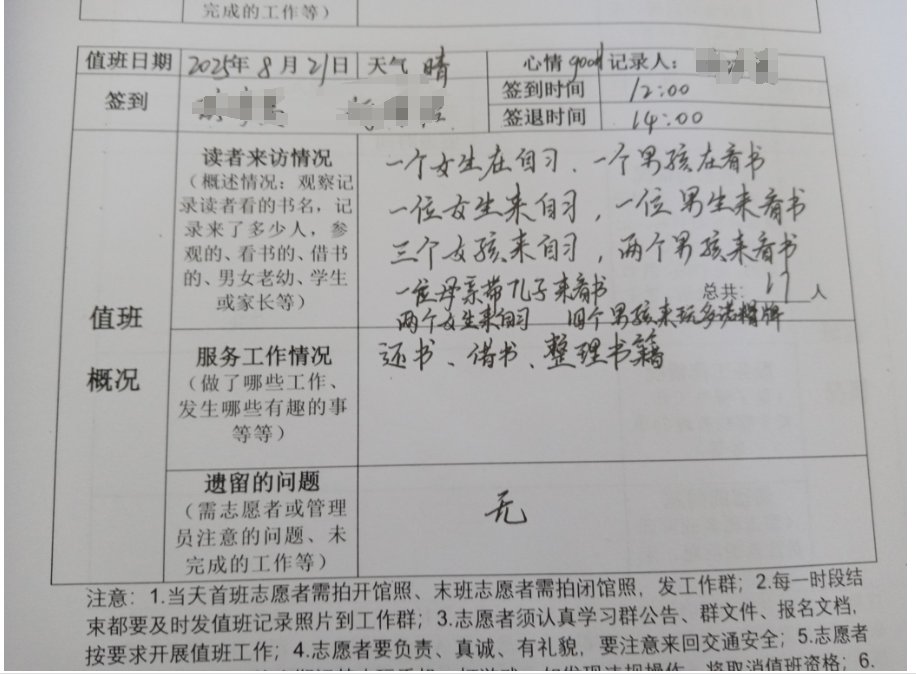 完成的工作等）
值班日期 2025年8月21日 天气 晴 心情 good 记录人：
签到 签到时间 12:00
签退时间 14:00
读者来访情况
（概述情况：观察记
录读者看的书名，记
录来了多少人，参
观的、看书的、借书
的、男女老幼、学生
或家长等）
一个女生在自习、一个男孩在看书
一位女生来自习，一位男生来看书
三个女孩来自习，两个男孩来看书
一位母亲带儿子来看书 总共：17人
两个女生来自习 四个男孩来玩多诺棋牌
值班
概况
服务工作情况
（做了哪些工作、
发生哪些有趣的事
等等）
还书、借书、整理书籍
遗留的问题
（需志愿者或管理
员注意的问题、未
完成的工作等）
无
注意：1.当天首班志愿者需拍开馆照、末班志愿者需拍闭馆照，发工作群；2.每一时段结
束都要及时发值班记录照片到工作群；3.志愿者须认真学习群公告、群文件、报名文档，
按要求开展值班工作；4.志愿者要负责、真诚、有礼貌，要注意来回交通安全；5.志愿者
将取消值班资格；6.